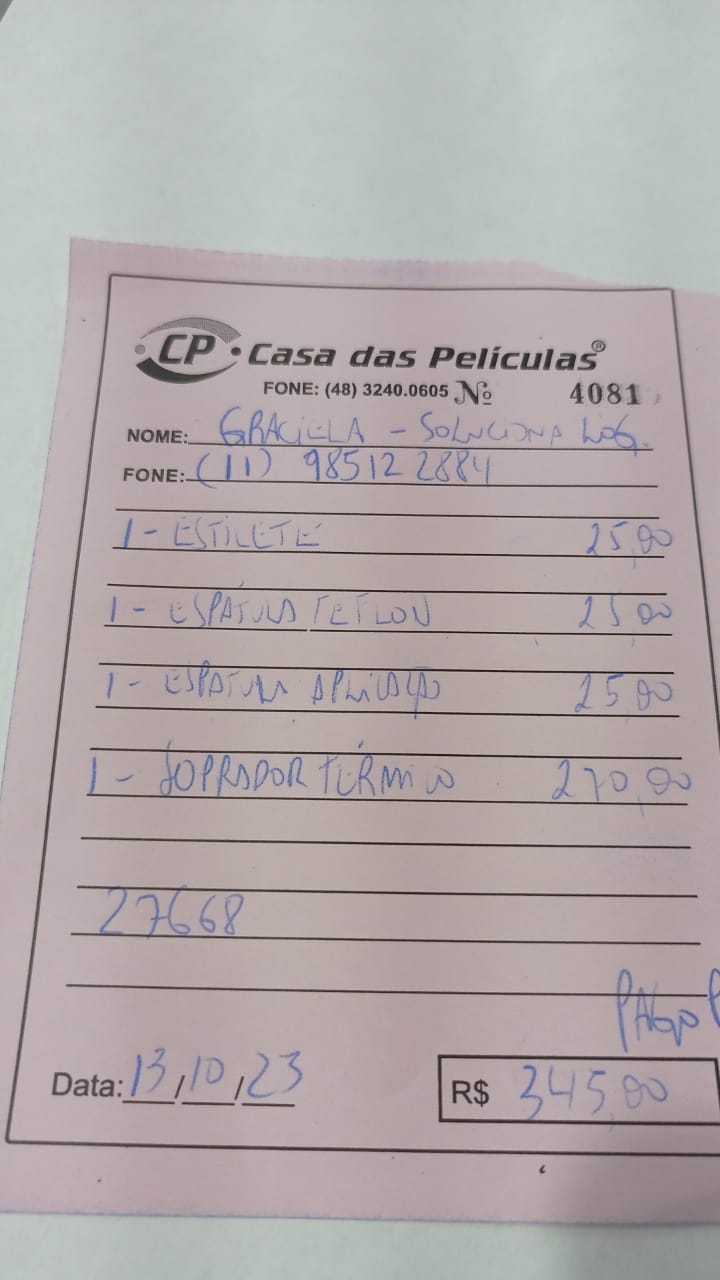 CP • Casa das Películas®
FONE: (48) 3240.0605 Nº 4081
NOME: GRACIELA - SOLUCIONA LOG.
FONE: (11) 98512 2884
1 - ESTILETE 25,00
1 - ESPÁTULA TEFLON 25,00
1 - ESPATULA APLICAÇÃO 25,00
1 - SOPRADOR TÉRMICO 270,00
27668
PAGO
Data: 13/10/23 R$ 345,00